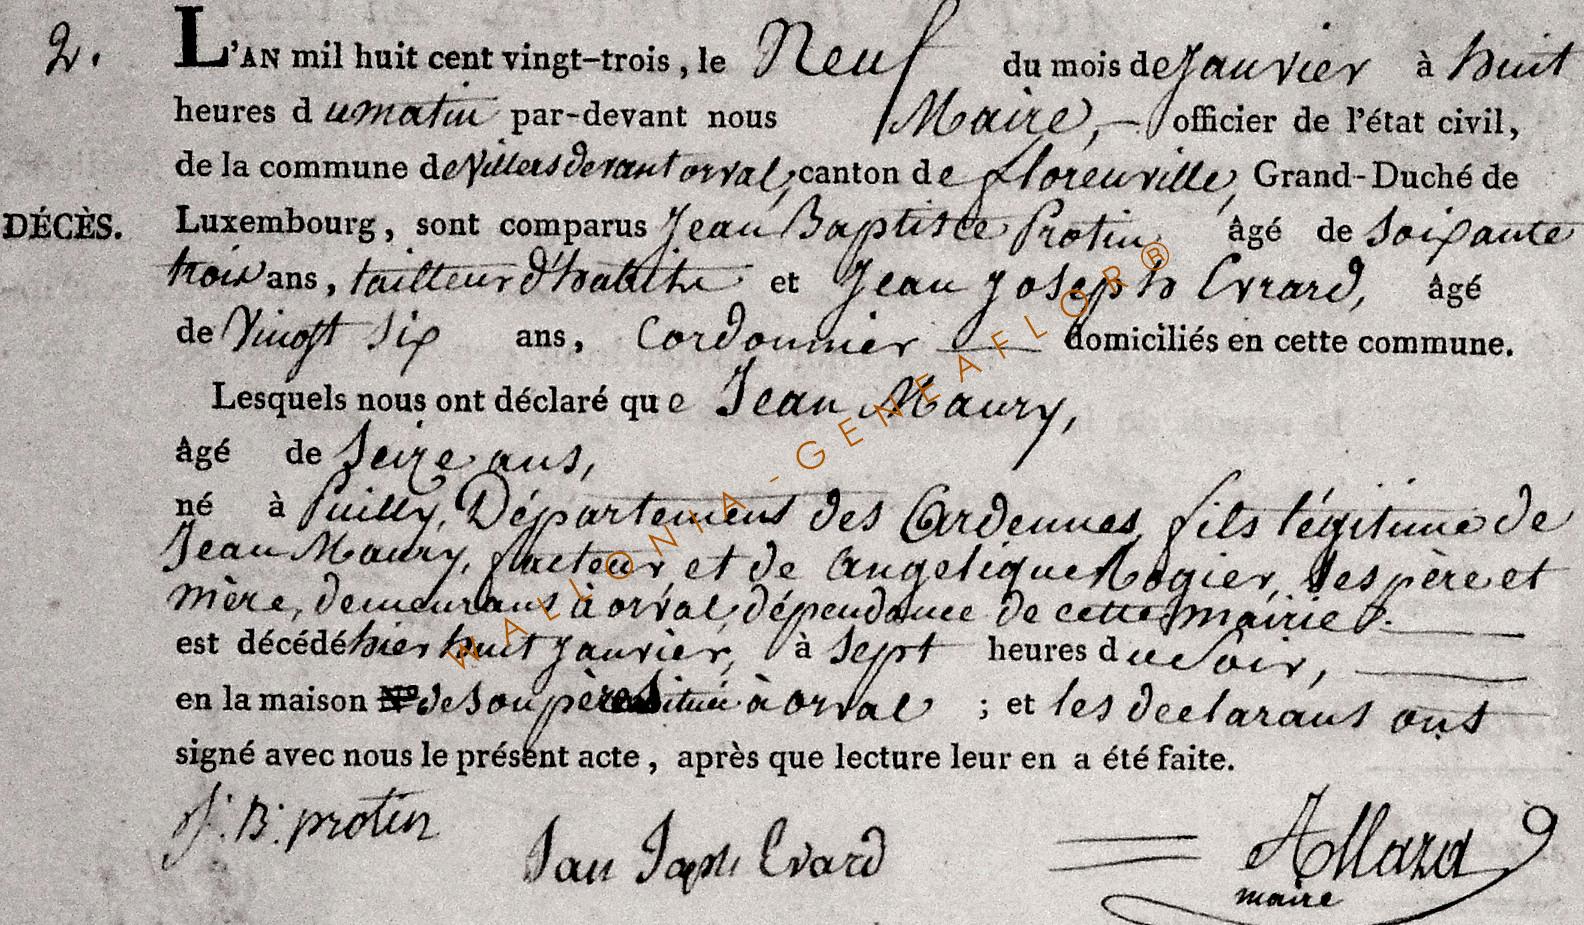 2.
L'AN mil huit cent vingt-trois, le Neuf du mois de Janvier à huit
heures du matin par-devant nous Maire, officier de l'état civil,
de la commune de Villers devant orval, canton de florenville, Grand-Duché de
DÉCÈS.
Luxembourg, sont comparus Jean Baptiste Protin âgé de Soixante
trois ans, tailleur d'habits et Jean Joseph Evrard, âgé
de Vingt Six ans, Cordonnier domiciliés en cette commune.
Lesquels nous ont déclaré que Jean Maury,
âgé de Seize ans,
né à Puilly, Département des Ardennes, fils légitime de
Jean Maury, facteur, et de Angelique Rogier, ses père et
mère, demeurans à orval, dépendance de cette Mairie.
est décédé hier huit Janvier, à Sept heures du Soir,
en la maison N° de Son père Située à orval ; et les declarans ont
signé avec nous le présent acte, après que lecture leur en a été faite.
J. B. protin
Jan Joseph Evard
maire
WALLONIA-GENEAFLOR®